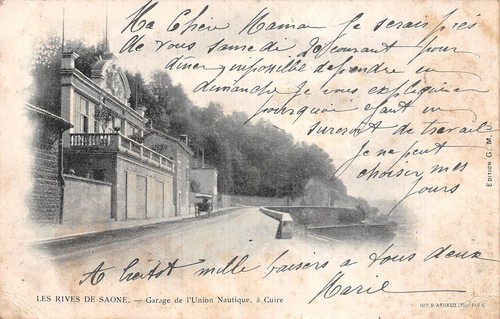 Ma Chère Maman Je serais près
de vous samedi 20 courant pour
dîner, impossible de prendre un
dimanche je vous expliquerai
pourquoi ayant un
surcroit de travail
Je ne peut
choisir mes
jours
A bientot mille baisers a tous deux
Marie
LES RIVES DE SAONE. — Garage de l'Union Nautique, à Cuire
EDITION G. M.